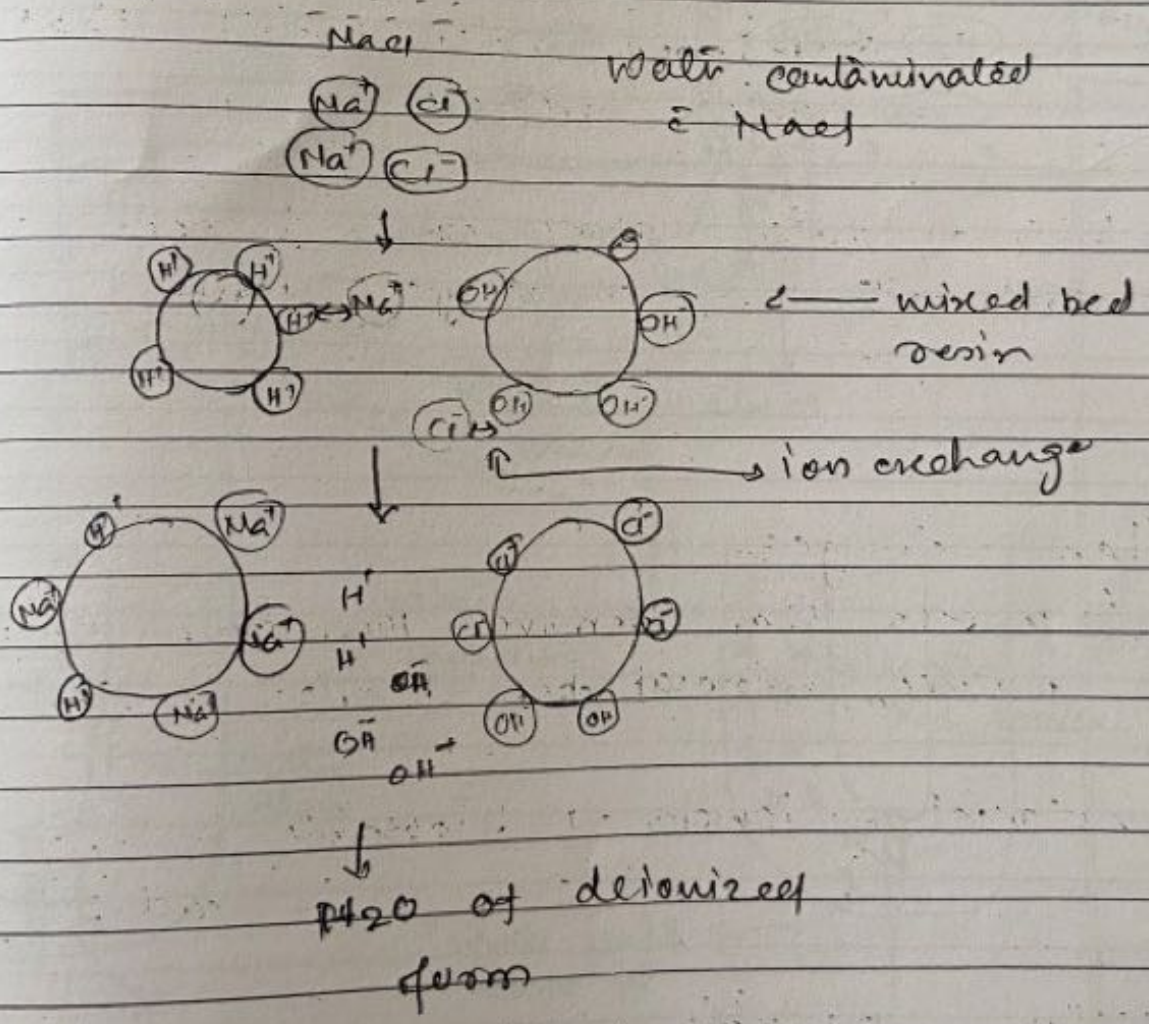 NaCl
Water contaminated
c̄ NaCl
Na⁺ Cl⁻
Na⁺ Cl⁻
H⁺ H⁺
H⁺ ↔ Na⁺
H⁺ H⁺
OH⁻
OH⁻
OH⁻ OH⁻
Cl⁻ ↔
← mixed bed
resin
→ ion exchange
H⁺ Na⁺
Na⁺ Na⁺
H⁺ Na⁺
H⁺
H⁺
OH⁻
OH⁻
OH⁻
Cl⁻ Cl⁻
Cl⁻ Cl⁻
OH⁻ OH
↓
H2O of deionized
form